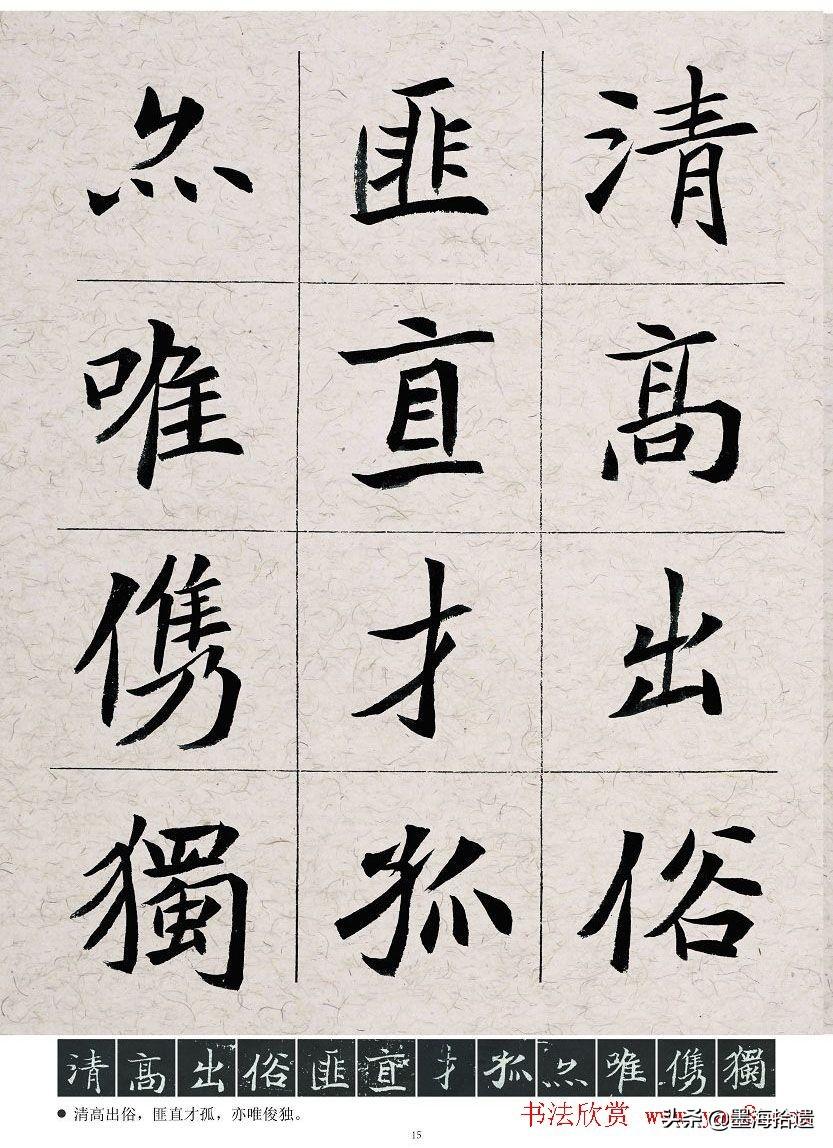 清高出俗
匪直才孤
亦唯儁獨
清高出俗匪直才孤亦唯儁獨
● 清高出俗，匪直才孤，亦唯俊独。
书法欣赏
头条@墨海拾遗
15